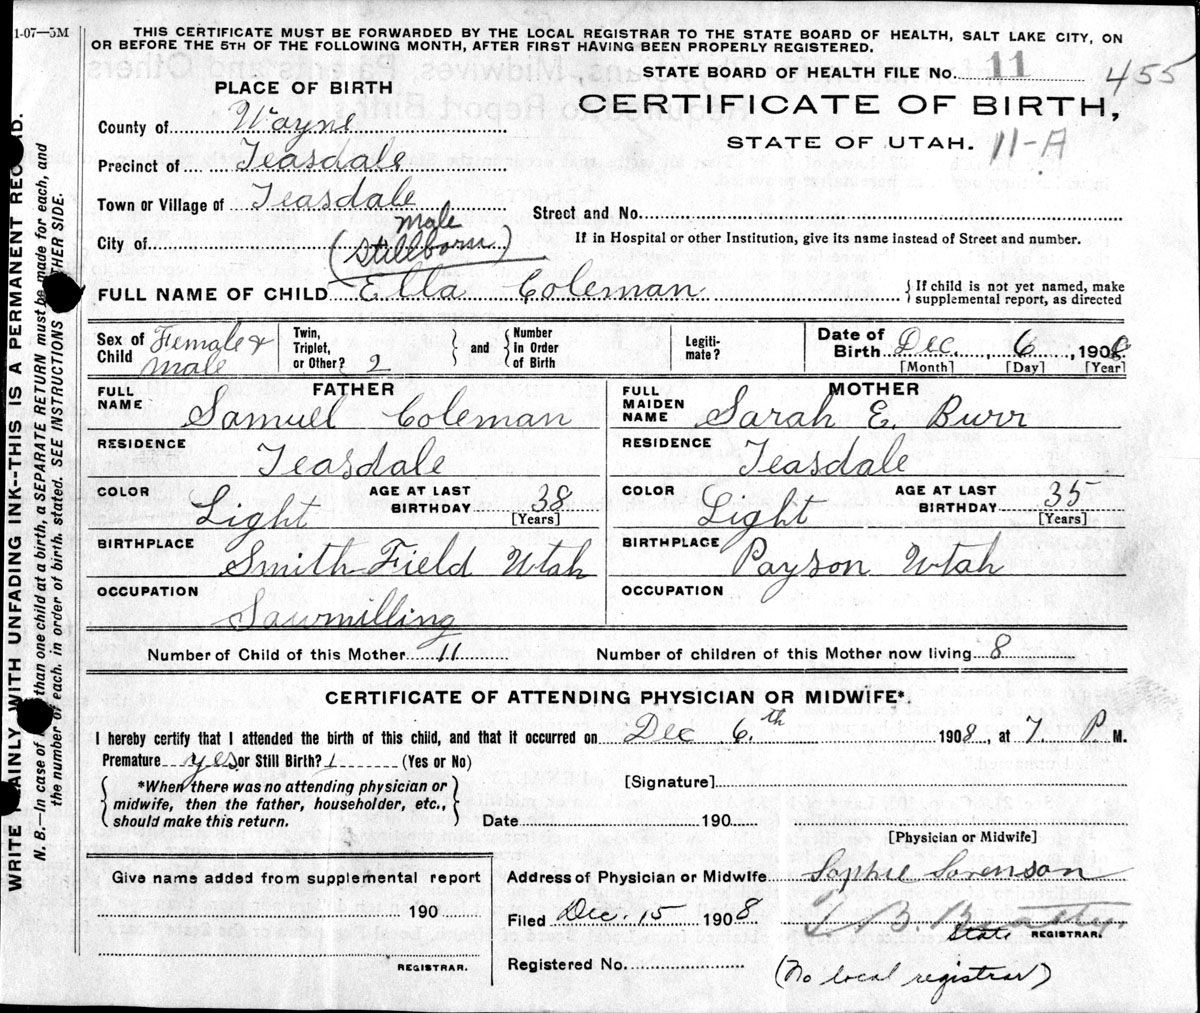 1-07—5M
THIS CERTIFICATE MUST BE FORWARDED BY THE LOCAL REGISTRAR TO THE STATE BOARD OF HEALTH, SALT LAKE CITY, ON
OR BEFORE THE 5TH OF THE FOLLOWING MONTH, AFTER FIRST HAVING BEEN PROPERLY REGISTERED.
STATE BOARD OF HEALTH FILE No. 11 455
PLACE OF BIRTH
CERTIFICATE OF BIRTH,
STATE OF UTAH. 11-A
County of Wayne
Precinct of Teasdale
Town or Village of Teasdale
Street and No.
City of
male
(Stillborn)
If in Hospital or other Institution, give its name instead of Street and number.
FULL NAME OF CHILD Ella Coleman
{ If child is not yet named, make
supplemental report, as directed
Sex of Child Female & male
Twin, Triplet, or Other? 2
and
Number In Order of Birth
Legiti-mate?
Date of Birth Dec. 6, 1908
[Month] [Day] [Year]
FATHER
FULL NAME Samuel Coleman
RESIDENCE Teasdale
COLOR Light AGE AT LAST BIRTHDAY 38 [Years]
BIRTHPLACE Smith Field Utah
OCCUPATION Sawmilling
MOTHER
FULL MAIDEN NAME Sarah E. Burr
RESIDENCE Teasdale
COLOR Light AGE AT LAST BIRTHDAY 35 [Years]
BIRTHPLACE Payson Utah
OCCUPATION
Number of Child of this Mother 11 Number of children of this Mother now living 8
CERTIFICATE OF ATTENDING PHYSICIAN OR MIDWIFE*
I hereby certify that I attended the birth of this child, and that it occurred on Dec 6th 1908, at 7. P M.
Premature yes or Still Birth? 1 (Yes or No)
{ *When there was no attending physician or
midwife, then the father, householder, etc.,
should make this return. }
[Signature]
Date 190
[Physician or Midwife]
Give name added from supplemental report
190
REGISTRAR.
Address of Physician or Midwife Sophie Sorenson
Filed Dec. 15 1908 T. B. Beatty.
State REGISTRAR.
Registered No. (No local registrar)
WRITE PLAINLY WITH UNFADING INK--THIS IS A PERMANENT RECORD.
N. B.—In case of more than one child at a birth, a SEPARATE RETURN must be made for each, and
the number of each, in order of birth, stated. SEE INSTRUCTIONS OTHER SIDE.